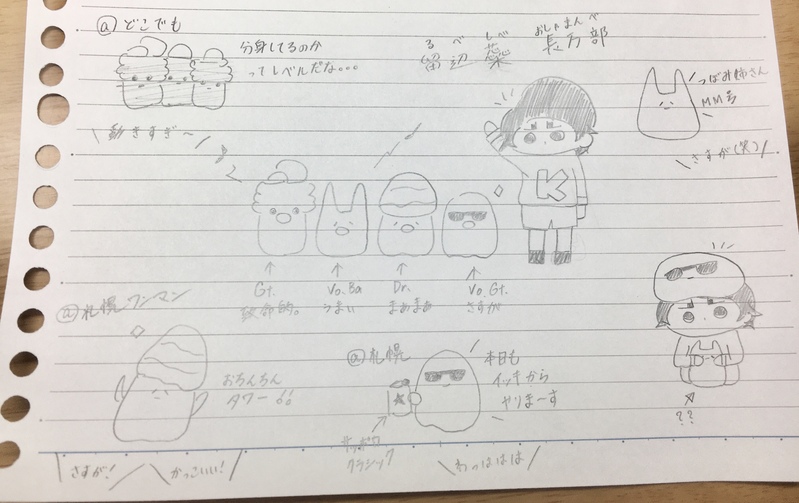 @どこでも
分身してるのか
ってレベルだな。。。
動きすぎ〜
るべしべ
留辺蘂
おしゃまんべ
長万部
つばみ姉さん
MM号
さすが(笑)
K
Gt.
致命的。
Vo.Ba
うまい
Dr.
まぁまぁ
Vo.Gt.
さすが
@札幌ワンマン
おちんちん
タワー!!
さすが!
かっこいい!
@札幌
本日も
イッキから
やりまーす
サッポロ
クラシック
わっははは
??